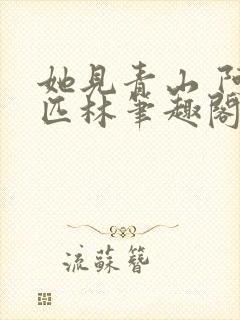 她見青山 阿
匹林筆趣閣
流蘇簪